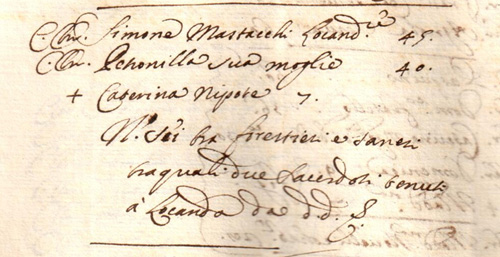 C. Chr. Simone Mastacchi Locand.re 45.
C. Chr. Petronilla sua moglie 40.
+ Caterina Nipote 7.
N.o Sei fra forestieri e
tra quali due Sacerdoti tenuti
à Locanda da d.d. S.